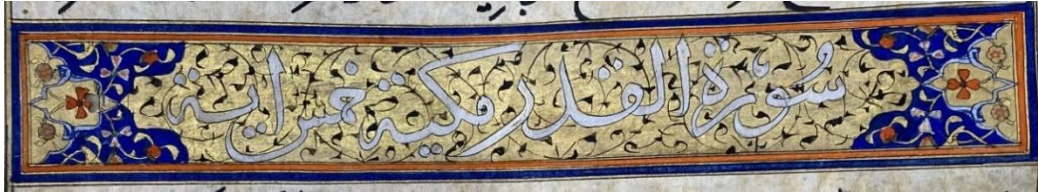 سُوْرَة القدر مكية خمس اية